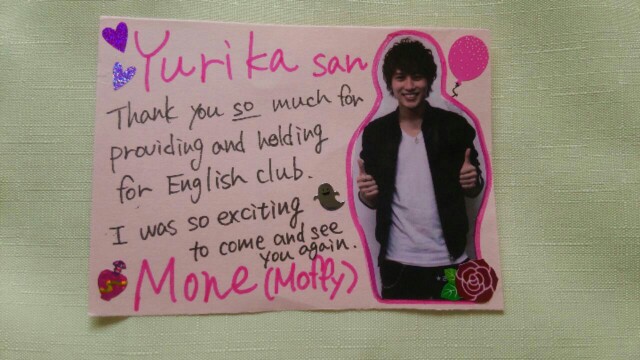 Yurika san
Thank you so much for
providing and holding
for English club.
I was so exciting
to come and see
you again.
Mone (Moffy)